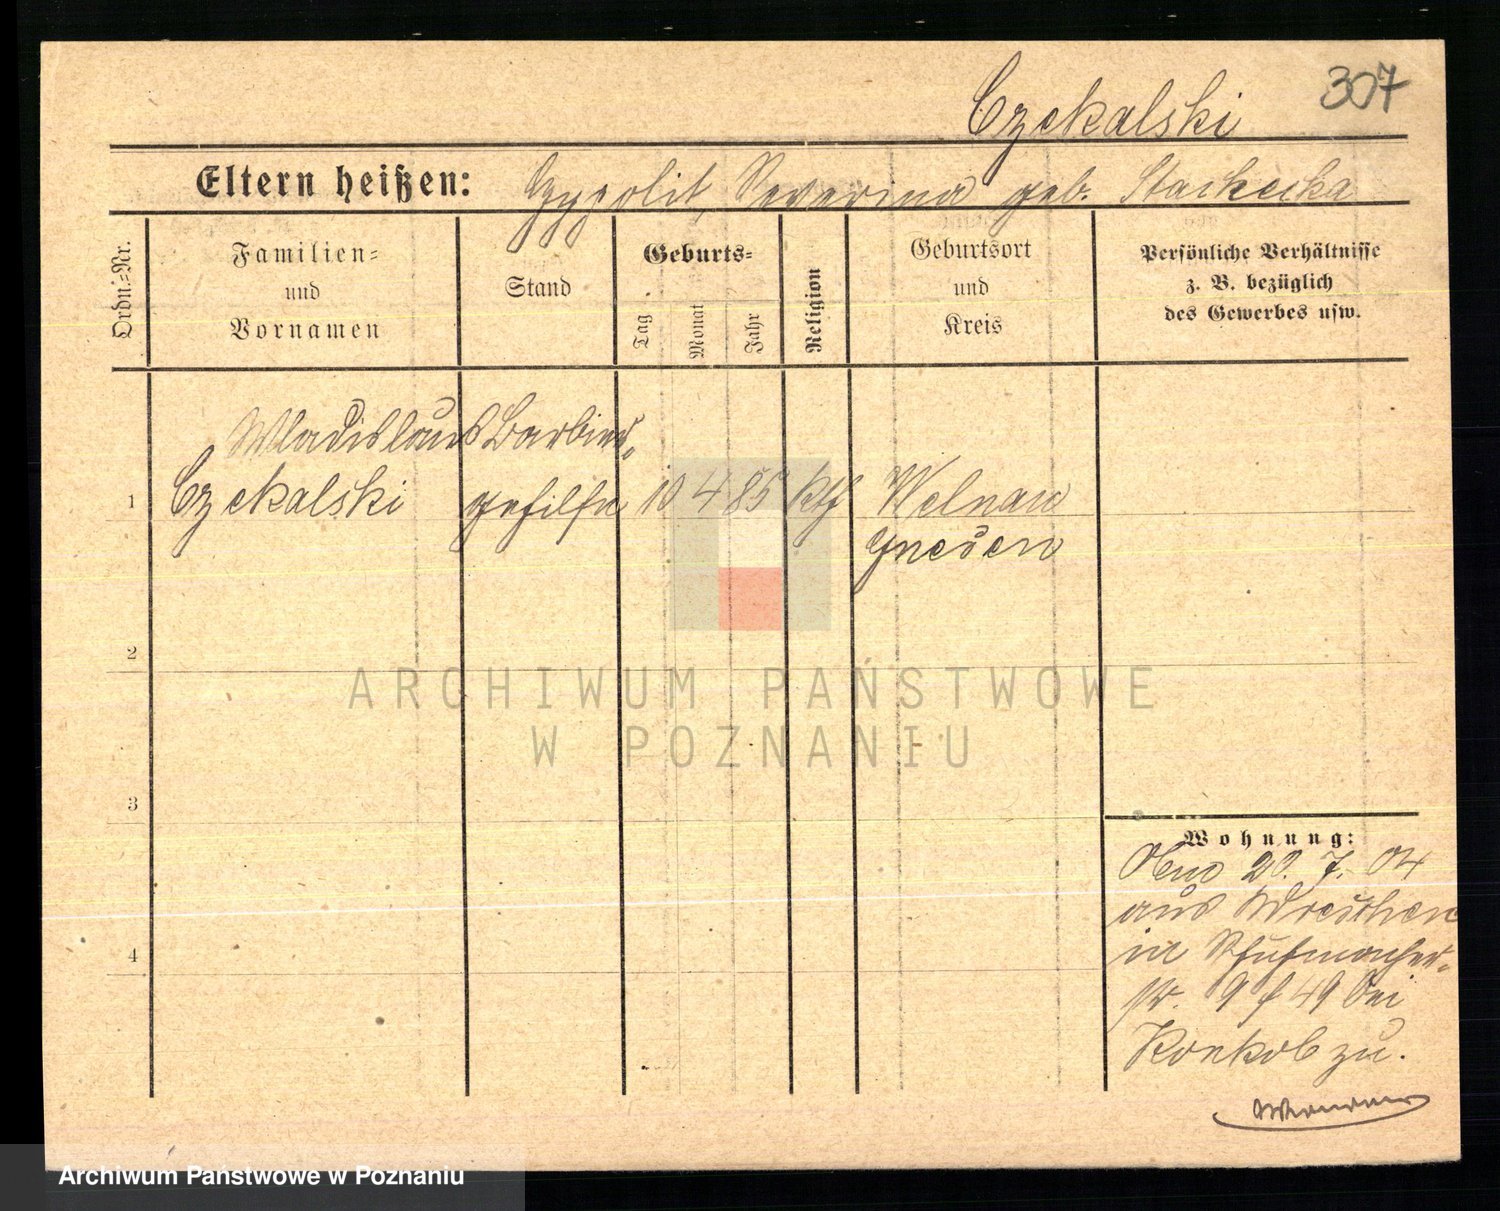 307
Czekalski
Eltern heißen: Hypolit, Severina geb. Stachecka
Ordn.-Nr.
Familien-
und
Vornamen
Stand
Geburts-
Tag
Monat
Jahr
Religion
Geburtsort
und
Kreis
Persönliche Verhältnisse
z. B. bezüglich
des Gewerbes usw.
Wladislaus Barbier-
1 Czekalski gehilfe 10 4 85 kth Welnau
Gnesen
2
3
4
ARCHIWUM PAŃSTWOWE
W POZNANIU
Wohnung:
20. 7. 04
aus Wreschen
in
str. 9 49 bei
zu.
Archiwum Państwowe w Poznaniu